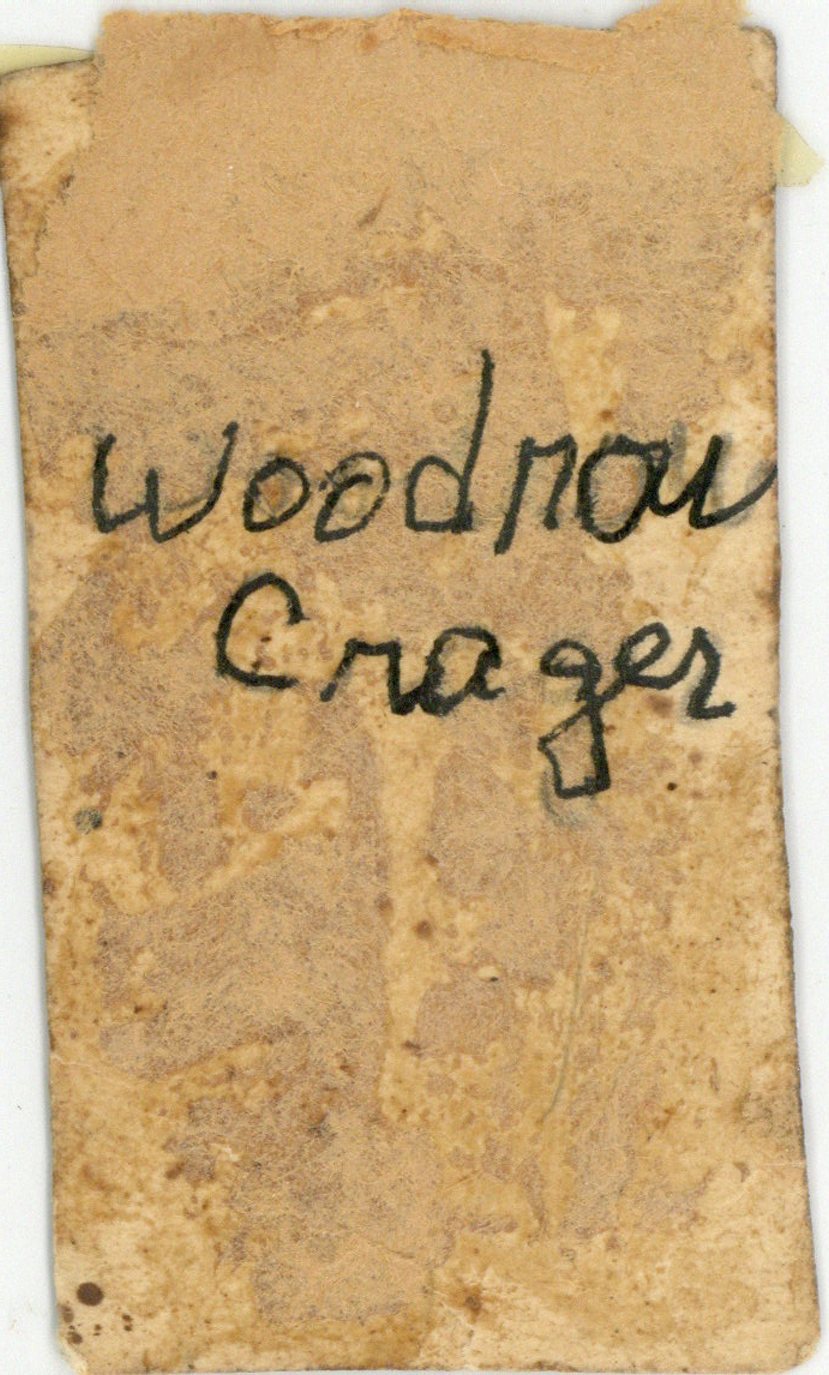 Woodrow
Crager